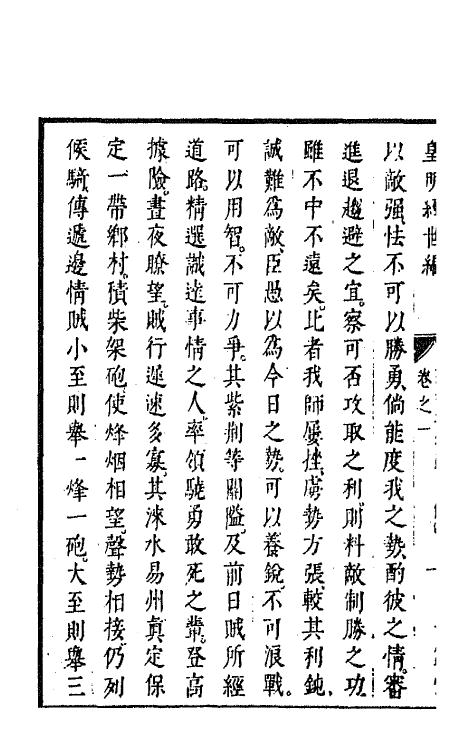 皇明經世編
卷之一
以敵强怯不可以勝勇倘能度我之勢酌彼之情審
進退趨避之宜察可否攻取之利則料敵制勝之功
雖不中不遠矣比者我師屢挫虜勢方張較其利鈍
誠難為敵臣愚以為今日之勢可以養銳不可浪戰
可以用智不可力爭其紫荆等關隘及前日賊所經
道路精選誠達事情之人率領驍勇敢死之輩登高
據險晝夜瞭望賊行遲速多寡其淶水易州真定保
定一帶鄉村積柴架砲使烽烟相望聲勢相接仍列
候騎傳遞邊情賊小至則舉一烽一砲大至則舉三